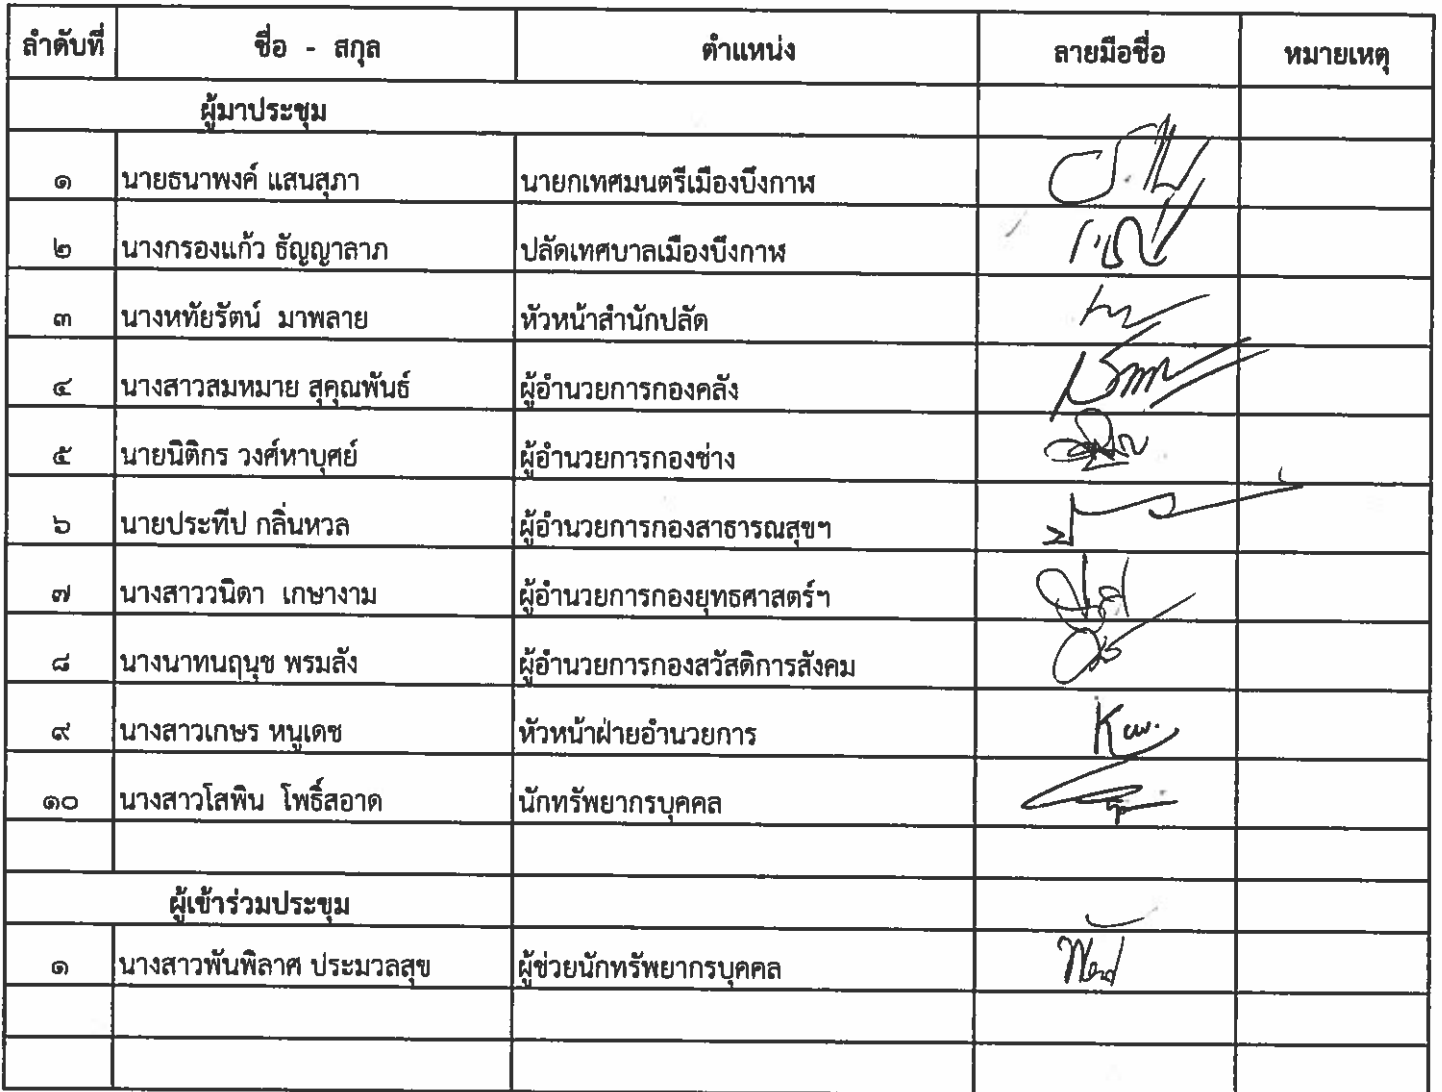 ลำดับที่ ชื่อ - สกุล ตำแหน่ง ลายมือชื่อ หมายเหตุ
ผู้มาประชุม
๑ นายธนาพงค์ แสนสุภา นายกเทศมนตรีเมืองบึงกาฬ
๒ นางกรองแก้ว ธัญญาลาภ ปลัดเทศบาลเมืองบึงกาฬ
๓ นางหทัยรัตน์ มาพลาย หัวหน้าสำนักปลัด
๔ นางสาวสมหมาย สุคุณพันธ์ ผู้อำนวยการกองคลัง
๕ นายนิติกร วงศ์หาบุศย์ ผู้อำนวยการกองช่าง
๖ นายประทีป กลิ่นหวล ผู้อำนวยการกองสาธารณสุขฯ
๗ นางสาววนิดา เกษางาม ผู้อำนวยการกองยุทธศาสตร์ฯ
๘ นางนาทนฤนุช พรมลัง ผู้อำนวยการกองสวัสดิการสังคม
๙ นางสาวเกษร หนูเดช หัวหน้าฝ่ายอำนวยการ
๑๐ นางสาวโสพิน โพธิ์สอาด นักทรัพยากรบุคคล
ผู้เข้าร่วมประชุม
๑ นางสาวพันพิลาศ ประมวลสุข ผู้ช่วยนักทรัพยากรบุคคล